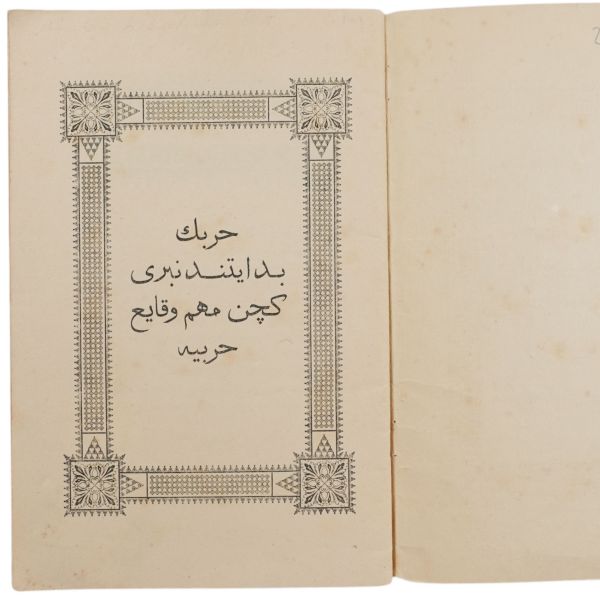 حربك
بدايتندنبرى
كچن مهم وقايع
حربيه